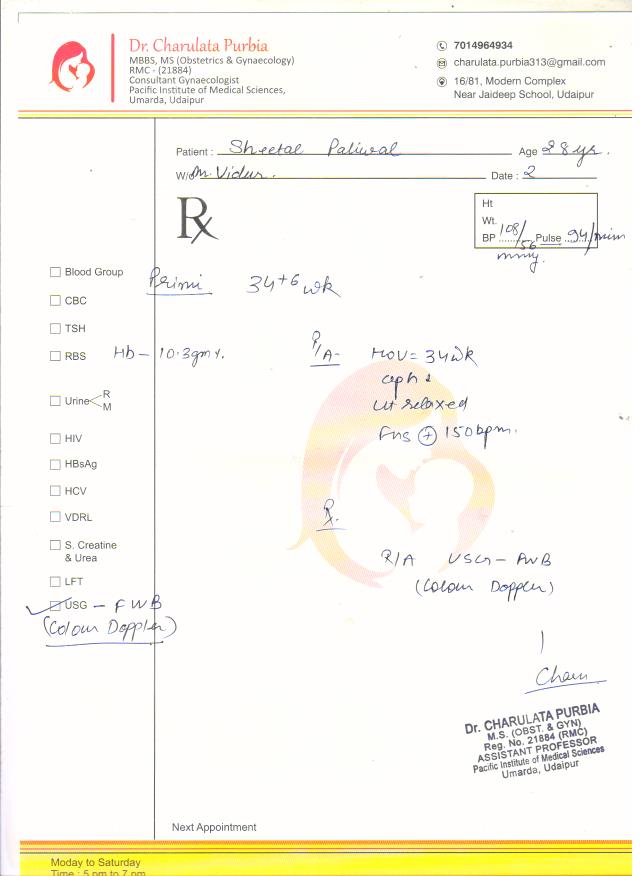 Dr. Charulata Purbia
MBBS, MS (Obstetrics & Gynaecology)
RMC - (21884)
Consultant Gynaecologist
Pacific Institute of Medical Sciences,
Umarda, Udaipur
7014964934
charulata.purbia313@gmail.com
16/81, Modern Complex
Near Jaideep School, Udaipur
Patient : Sheetal Paliwal Age 28 yr.
W/o Mr. Vidur. Date : 2
Rx
Ht
Wt.
BP 108/56 Pulse 94/min
mmg.
Primi 34+6 wk
Blood Group
CBC
TSH
RBS Hb - 10.3gm%.
Urine R
M
HIV
HBsAg
HCV
VDRL
S. Creatine
& Urea
LFT
USG - FWB
(Colour Doppler)
P/A- HOU = 34wk
ceph
ut relaxed
FHS + 150bpm.
Rx.
R/A USG - FWB
(Colour Doppler)
Charu
Dr. CHARULATA PURBIA
M.S. (OBST. & GYN)
Reg. No. 21884 (RMC)
ASSISTANT PROFESSOR
Pacific Institute of Medical Sciences
Umarda, Udaipur
Next Appointment
Moday to Saturday
Time : 5 pm to 7 pm